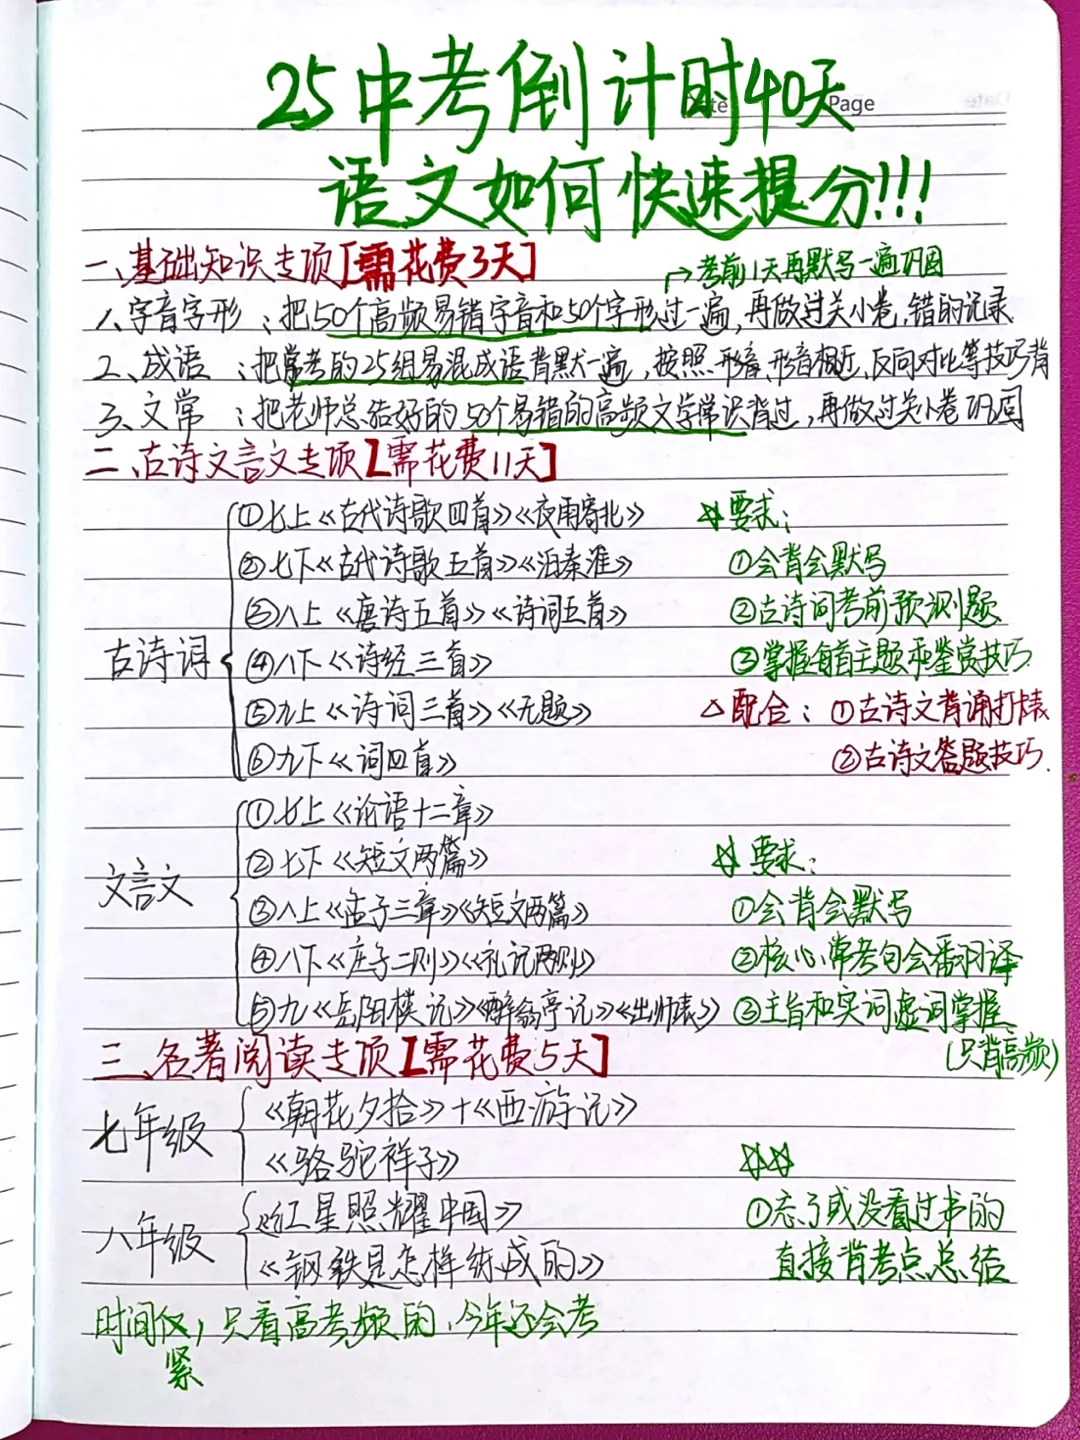 25中考倒计时40天
Page
语文如何快速提分!!!
一、基础知识专项【需花费3天】
考前1天再默写一遍巩固
1、字音字形：把50个高频易错字音和50个字形过一遍,再做过关小卷,错的记录
2、成语：把常考的25组易混成语背默一遍,按照形音、形音相近、反向对比等技巧背
3、文常：把老师总结好的50个易错的高频文学常识背过,再做过关小卷巩固
二、古诗文言文专项【需花费11天】
古诗词
①七上《古代诗歌四首》《夜雨寄北》
②七下《古代诗歌五首》《泊秦淮》
③八上《唐诗五首》《诗词五首》
④八下《诗经三首》
⑤九上《诗词三首》《无题》
⑥九下《词四首》
☆要求：
①会背会默写
②古诗词考前预测题
③掌握每首主题和鉴赏技巧
△配合：①古诗文背诵打表
②古诗文答题技巧.
文言文
①七上《论语十二章》
②七下《短文两篇》
③八上《孟子三章》《短文两篇》
④八下《庄子二则》《礼记两则》
⑤九《岳阳楼记》《醉翁亭记》《出师表》
☆要求：
①会背会默写
②核心常考句会翻译
③主旨和实词虚词掌握
(只背高频)
三、名著阅读专项【需花费5天】
七年级
《朝花夕拾》+《西游记》
《骆驼祥子》
八年级
《红星照耀中国》
《钢铁是怎样练成的》
☆☆
①忘了或没看过书的
直接背考点总结
时间紧,只看高考频的,今年还会考